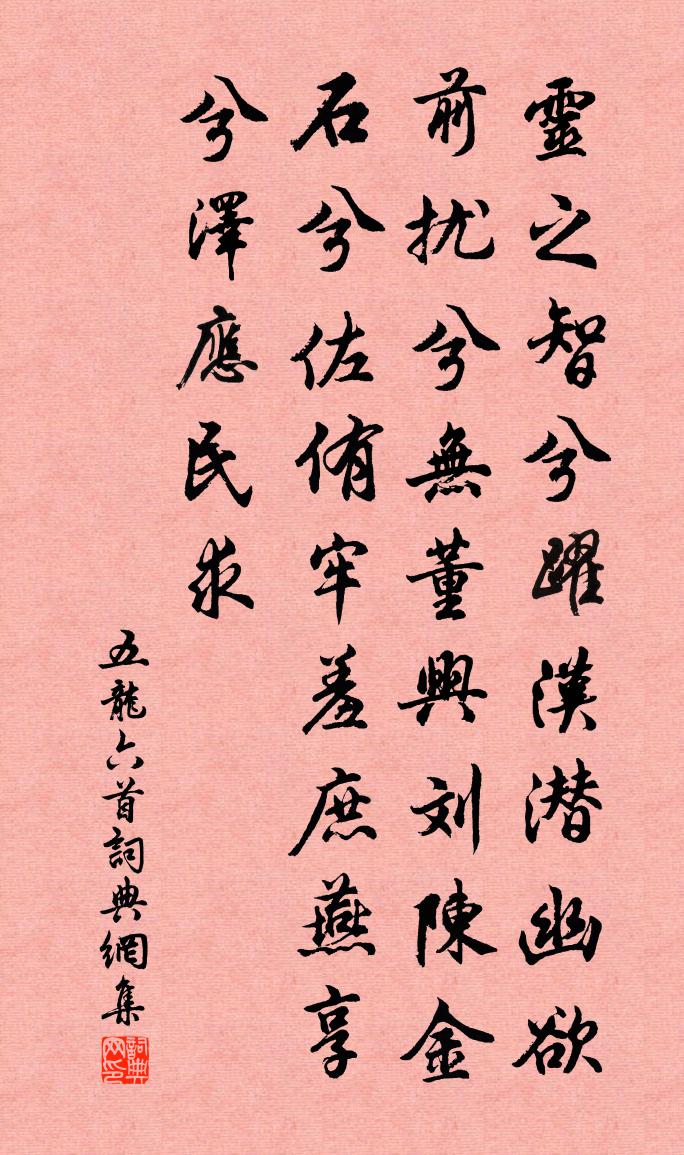 靈之智兮躍漢潜幽欲
前扰兮無董興刘陳金
石兮佐侑牢羞庶燕享
兮澤應民求
五龍六首詞典網集
詞典
网印